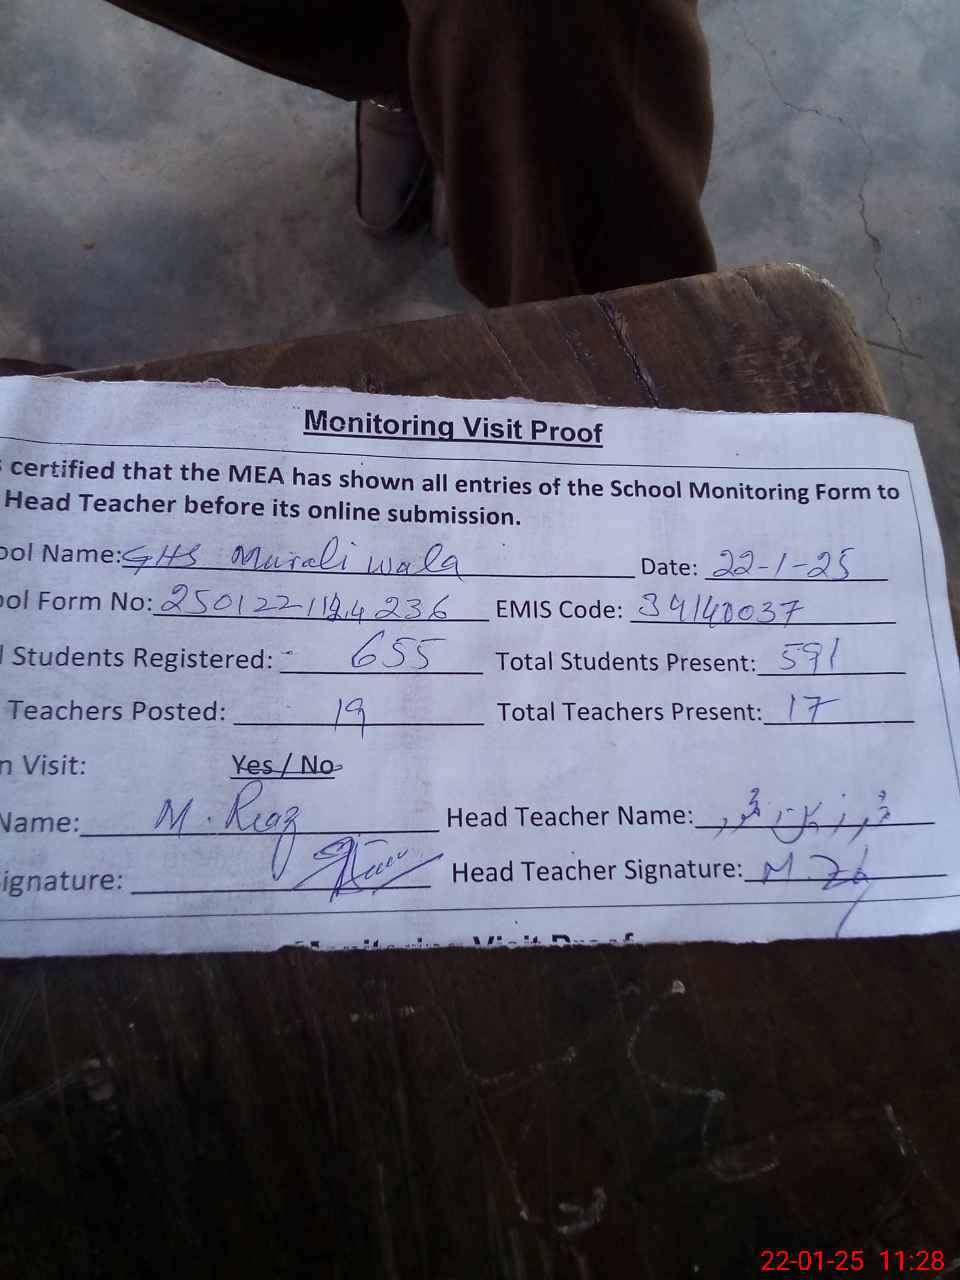 Monitoring Visit Proof
certified that the MEA has shown all entries of the School Monitoring Form to
Head Teacher before its online submission.
ool Name: GHS Murali wala Date: 22-1-25
ool Form No: EMIS Code: 34140037
l Students Registered: 655 Total Students Present: 591
Teachers Posted: 19 Total Teachers Present: 17
n Visit: Yes / No
Name: M. Riaz Head Teacher Name:
ignature: Head Teacher Signature: M.
Monitoring Visit Proof
22-01-25 11:28